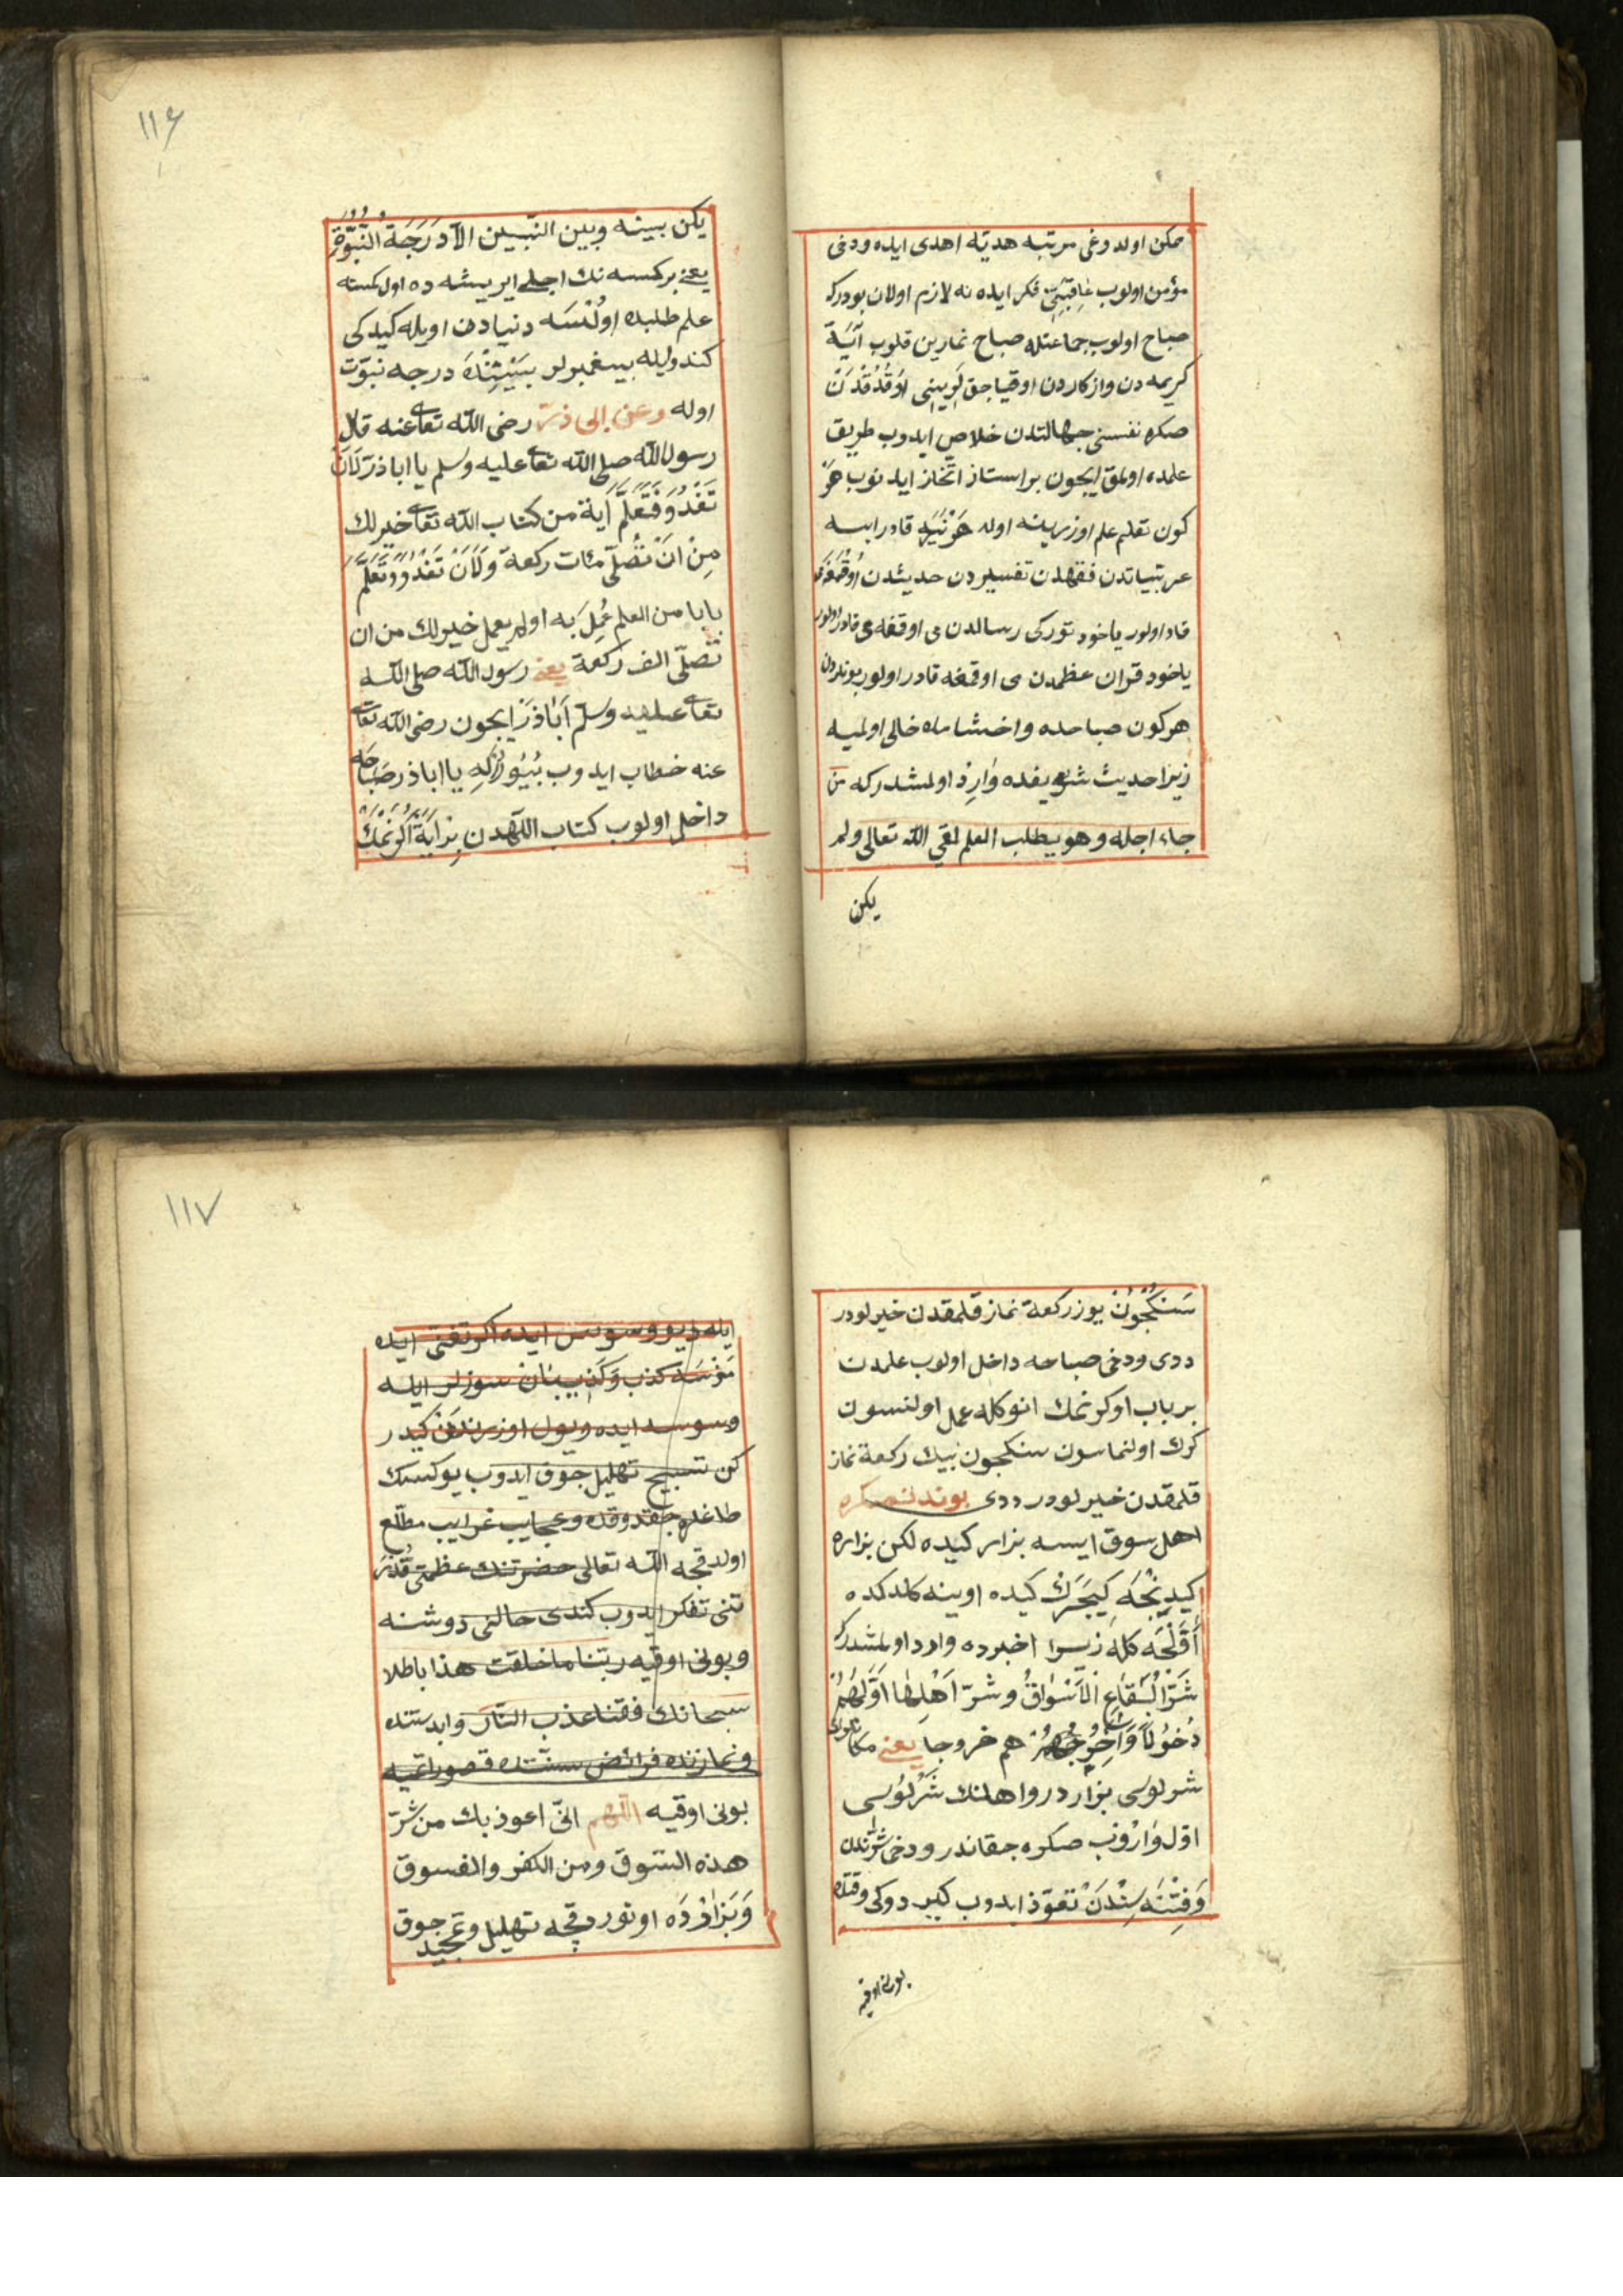 ممكن اولدوغی مرتبه هديّه اهدی ايده ودخی
مؤمن اولوب عاقبتی فكر ايده نه لازم اولان بودركه
صباح اولوب جماعتله صباح نمازين قلوب آيتَ
كريمه دن واذكاردن اوقياجق يَرينی اوقُدُقدن
صكره نفسنی جهالتدن خلاص ايدوب طريق
علمده اولمق ايچون بر استاذ اتّخاذ ايدنوب هَرْ
كون تعلم علم اوزرينه اوله هَرْنَيه قادر ايسه
عربيّاتدن فقهدن تفسيردن حديثدن
قادر اولور ياخود تورکی رسالدن می اوقمغه می قادر اولور
ياخود قران عظمدن می اوقمغه قادر اولور بوندن
هركون صباحده واخشامده خالی اولميه
زيرا حديث شريفده وٰارِدْ اولمشدركه من
جاء اجله وهو يطلب العلم لقی الله تعالی ولم
يكن
١١٦
يكن بينه وبين النّبيين الاّ دَرَجَةُ النُّبُوَّةِ
يعنی بر كمسه نك اجلی ايريشه ده اول كمسه
علم طلبده اولُنْسَه دنيادن اويله كيدركی
كندويله پيغمبرلر بَيْنِنْدَه درجه نبوّت
اوله وعن ابی ذرّ رضی الله تعا عنه قال
رسول الله صلی الله تعا عليه وسلم يا اباذر لَاَنْ
تَغْدُوَ فَتَعَلَّمَ اٰية من كتاب الله تعا خير لك
مِنْ اَنْ تُصَلّی مأت ركعة وَلَاَنْ تَغْدُوَ وَتَعَلَّمَ
بابا من العلم عُمِلَ به اولم يعمل خير لك من ان
تُصلّی الف ركعة يعنی رسول الله صلی الله
تعا عليه وسلم اَبَاذَرْ ايچون رضی الله تعا
عنه خطاب ايدوب بُيُورُركِه يا اباذر صَباحَه
داخل اولوب كتاب اللّهدن بِرْ اٰيَةْ اُكْرَنمَكْ
سَنكچُونْ يوز ركعة نماز قلمقدن خيرلودر
ددی ودخی صباحه داخل اولوب علمدن
بر باب اوكرنمك انوكله عمل اولنسون
كرك اولنماسون سنكچون بيك ركعة نماز
قلمقدن خيرلودر ددی بوندنصكره
اهل سوق ايسه بزار كيده لكن بزاره
كيدينْجَه كيجَرَكْ كيده اوينه كلدكده
اَوَّلْجَه كله زيرا اخبرده وارد اولمشدركه
شَرُّ الْبُقَاعِ الْاَسْوٰاقُ وشرّ اَهْلِهٰا اَوَّلُهُمْ
دُخُولاً وَاٰخِرُهُمْ هم خروجا يعنی
شرلوسی بزاردر واهلنك شَرْلوُسی
اوّل وٰارُوبْ صكره چقاندر ودخی شرّندن
وَفِتْنَه سِنْدَنْ تعوّذ ايدوب كيردوكی وقتده
بونی اوقيه
١١٧
ايله ديو وسوس ايده اكر تغنّی ايده
مَزسَه كذب وَكَذِيبَان سوزلر ايله
وسوسه ايده ويول اوزرندن كيدر
كن تسبيح تهليل چوق ايدوب يوكسك
طاغلره چقدوقده وعجايب غرايب مطّلع
اولدقچه الله تعالی حضرتنك عظمتی قُدْرَ
تنی تفكر ايدوب كندی حالنی دوشنه
وبونی اوقيه ربّنا ما خلقت هذا باطلا
سبحانك فقنا عذب النّار وابدستده
ونمازنده فرائض سنّتده قصور اتميه
بونی اوقيه اللّهم انّی اعوذ بك من شرّ
هذه السّوق ومن الكفر والفسوق
وَبَزٰارْدَه اوتوردقچه تهليل وتمجيد چوق